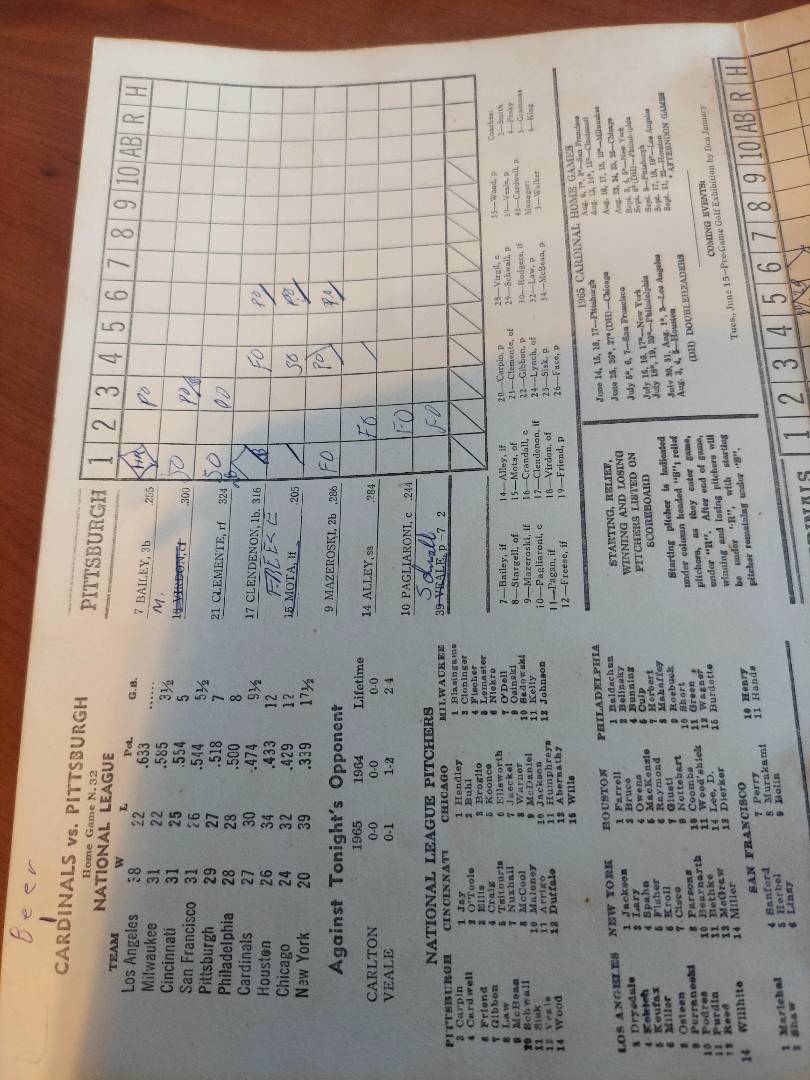 Beer
CARDINALS vs. PITTSBURGH
Home Game N. 32
NATIONAL LEAGUE
TEAM W L Pct. G.B.
Los Angeles 38 22 .633 ......
Milwaukee 31 22 .585 3½
Cincinnati 31 25 .554 5
San Francisco 31 26 .544 5½
Pittsburgh 29 27 .518 7
Philadelphia 28 28 .500 8
Cardinals 27 30 .474 9½
Houston 26 34 .433 12
Chicago 24 32 .429 12
New York 20 39 .339 17½
Against Tonight's Opponent
1965 1964 Lifetime
CARLTON 0-0 0-0 0-0
VEALE 0-1 1-2 2 4
NATIONAL LEAGUE PITCHERS
PITTSBURGH
3 Carpin
4 Cardwell
6 Friend
7 Gibbon
8 Law
9 McBean
10 Schwall
11 Sisk
12 Veale
14 Wood
CINCINNATI
1 Jay
2 O'Toole
3 Ellis
4 Craig
5 Tsitouris
7 Nuxhall
8 McCool
10 Maloney
11 Arrigo
12 Duffalo
CHICAGO
1 Hendley
2 Buhl
3 Broglio
5 Koonce
6 Ellsworth
7 Jaeckel
8 Warner
9 McDaniel
10 Jackson
11 Humphreys
12 Abernathy
15 Wills
MILWAUKEE
1 Blasingame
3 Cloninger
4 Fischer
5 Lemaster
6 Niekro
7 O'Dell
9 Osinski
10 Sadowski
11 Kelly
12 Johnson
LOS ANGELES
3 Drysdale
5 Koufax
6 Miller
8 Osteen
9 Perranoski
10 Podres
11 Purdin
12 Reed
14 Willhite
NEW YORK
1 Jackson
2 Lary
4 Spahn
5 Fisher
6 Kroll
7 Cisco
8 Parsons
10 Bearnarth
11 Bethke
12 McGraw
14 Miller
HOUSTON
1 Farrell
2 Bruce
4 Owens
5 MacKenzie
6 Raymond
7 Giusti
9 Nottebart
10 Coombs
11 Woodeshick
14 Lee, D.
15 Dierker
PHILADELPHIA
1 Baldschun
2 Belinsky
4 Bunning
5 Culp
7 Herbert
8 Mahaffey
9 Roebuck
10 Short
11 Green
12 Wagner
15 Burdette
SAN FRANCISCO
1 Marichal
2 Shaw
4 Sanford
5 Herbel
6 Linzy
7 Perry
8 Murakami
9 Bolin
10 Henry
11 Hands
PITTSBURGH 1 2 3 4 5 6 7 8 9 10 AB R H
7 BAILEY, 3b .255 HR PO
M.
18 VIRDON, cf .300 SO
21 CLEMENTE, rf 324 SO
17 CLENDENON, 1b. 316 FO PO
FREESE
15 MOTA, lf .205 SO PO
9 MAZEROSKI, 2b .286 FO PO PO
14 ALLEY, ss .284
10 PAGLIARONI, c .244 FO
Schwall
39 VEALE, p -7 2
7—Bailey, if
8—Stargell, of
9—Mazeroski, if
10—Pagliaroni, c
11—Pagan, if
12—Freese, if
14—Alley, if
15—Mota, of
16—Crandall, c
17—Clendenon, if
18—Virdon, of
19—Friend, p
20—Carpin, p
21—Clemente, of
22—Gibbon, p
24—Lynch, of
25—Sisk, p
26—Face, p
28—Virgil, c
29—Schwall, p
30—Rodgers, if
32—Law, p
34—McBean, p
35—Wood, p
39—Veale, p
43—Cardwell, p
Manager:
3—Walker
Coaches:
2—Smith
4—Pesky
5—Grammas
6—King
STARTING, RELIEF,
WINNING AND LOSING
PITCHERS LISTED ON
SCOREBOARD
Starting pitcher is indicated
under column headed "S"; relief
pitchers, as they enter game,
under "R". After end of game,
winning and losing pitchers will
be under "R", with starting
pitcher remaining under "S".
1965 CARDINAL HOME GAMES
June 14, 15, 16, 17—Pittsburgh
June 25, 26*, 27* (DH)—Chicago
July 5*, 6, 7—San Francisco
July 15, 16, 17*—New York
July 18*, 19, 20*—Philadelphia
July 30, 31, Aug. 1*, 2—Los Angeles
Aug. 3, 4, 5—Houston
* AFTERNOON GAMES
(DH) DOUBLEHEADERS
COMING EVENTS:
Tues., June 15—Pre-Game Golf Exhibition by Don January
1 2 3 4 5 6 7 8 9 10 AB R H